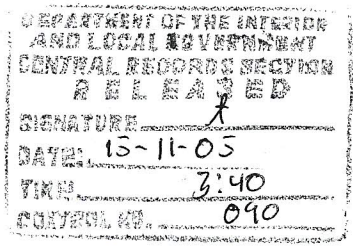 DEPARTMENT OF THE INTERIOR
AND LOCAL GOVERNMENT
CENTRAL RECORDS SECTION
RELEASED
SIGNATURE
DATE: 15-11-05
TIME: 3:40
CONTROL NO. 090